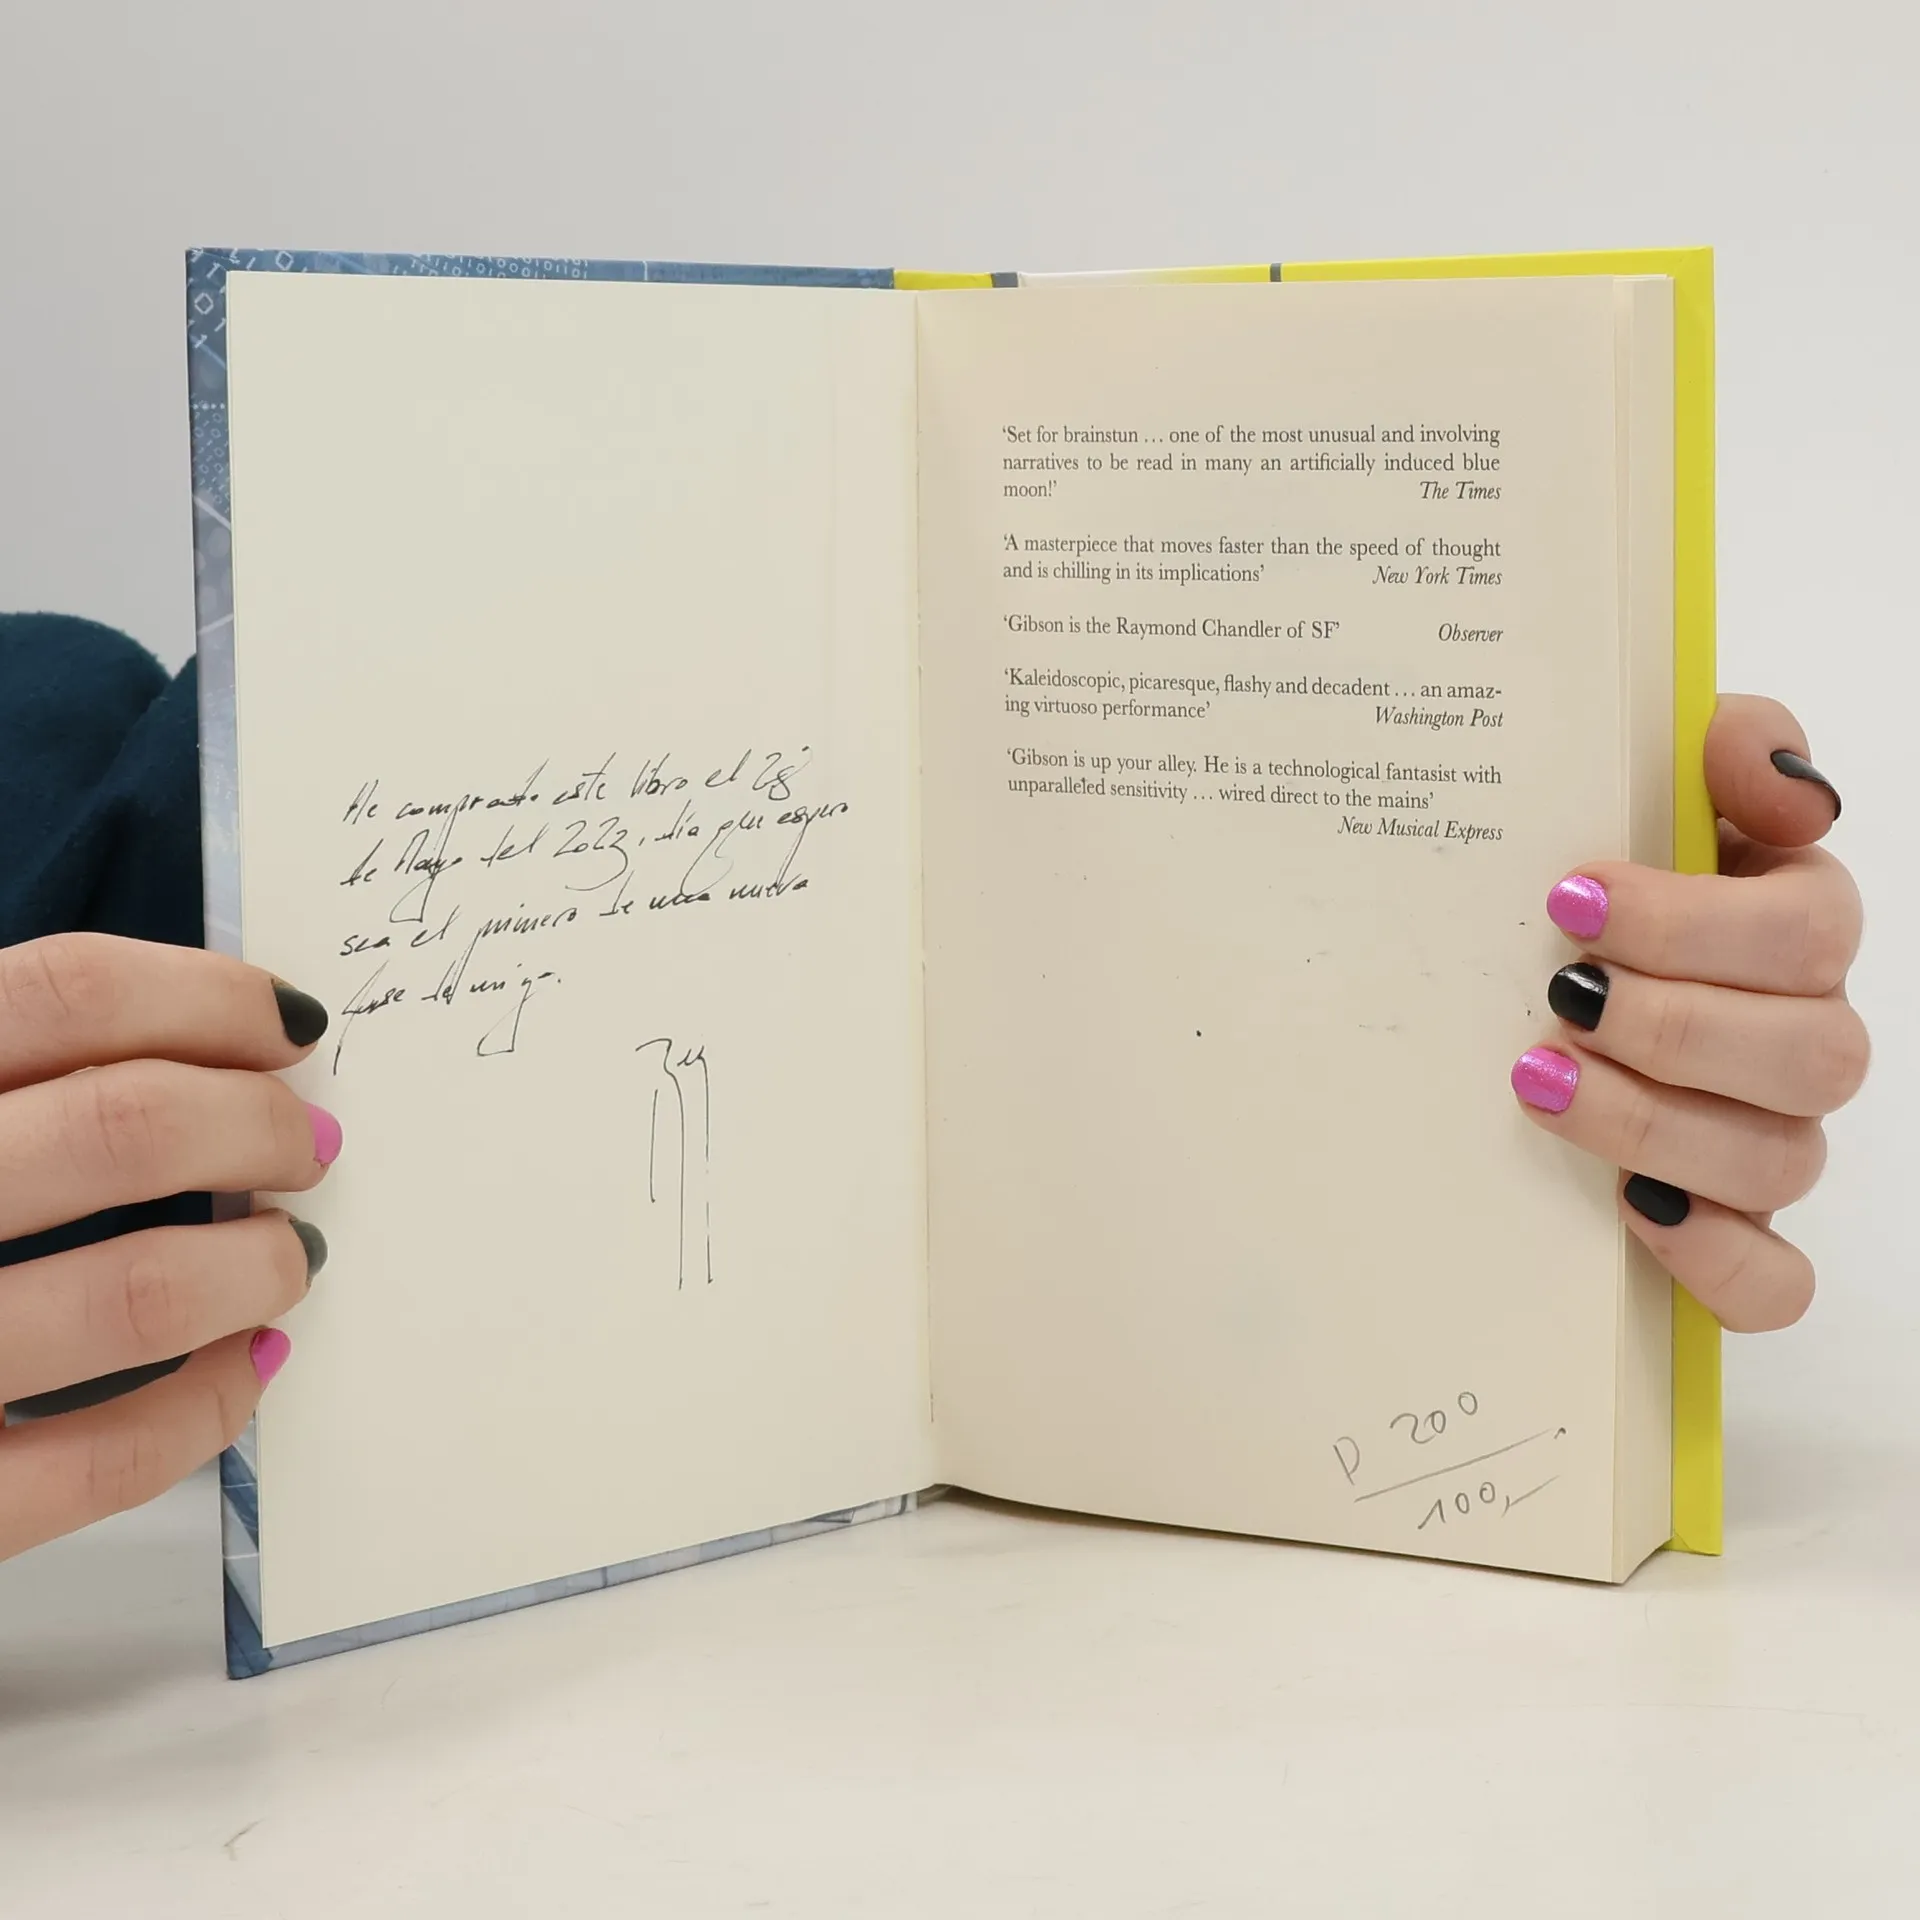 He comprado este libro el 28
de Mayo del 2023, día que espero
sea el primero de una nueva
fase de mi yo.
‘Set for brainstun ... one of the most unusual and involving
narratives to be read in many an artificially induced blue
moon!’ The Times
‘A masterpiece that moves faster than the speed of thought
and is chilling in its implications’ New York Times
‘Gibson is the Raymond Chandler of SF’ Observer
‘Kaleidoscopic, picaresque, flashy and decadent ... an amaz-
ing virtuoso performance’ Washington Post
‘Gibson is up your alley. He is a technological fantasist with
unparalleled sensitivity ... wired direct to the mains’
New Musical Express
P 200
100,-